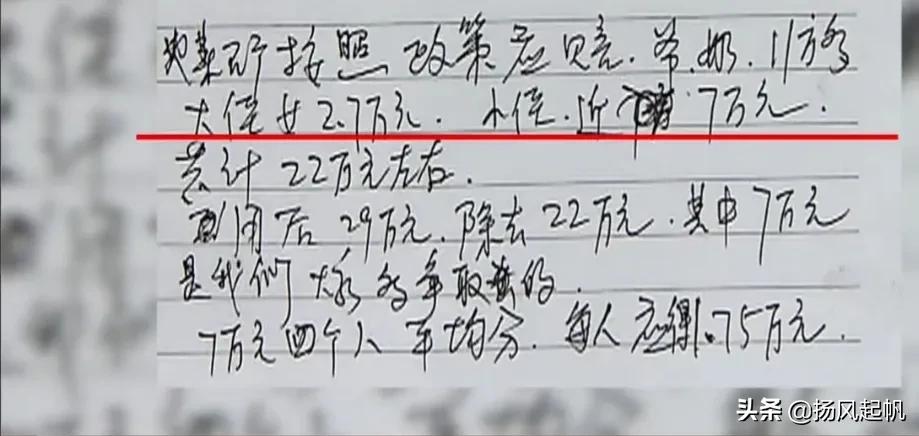 按照政策应赔.爷.奶.11万多
大侄女2.7万元.小侄.近7万元.
共计22万元左右.
到用后29万元.除去22万元.其中7万元
是我们大家争取来的.
7万元四个人平均分.每人应得1.75万元.
头条 @扬风起帆